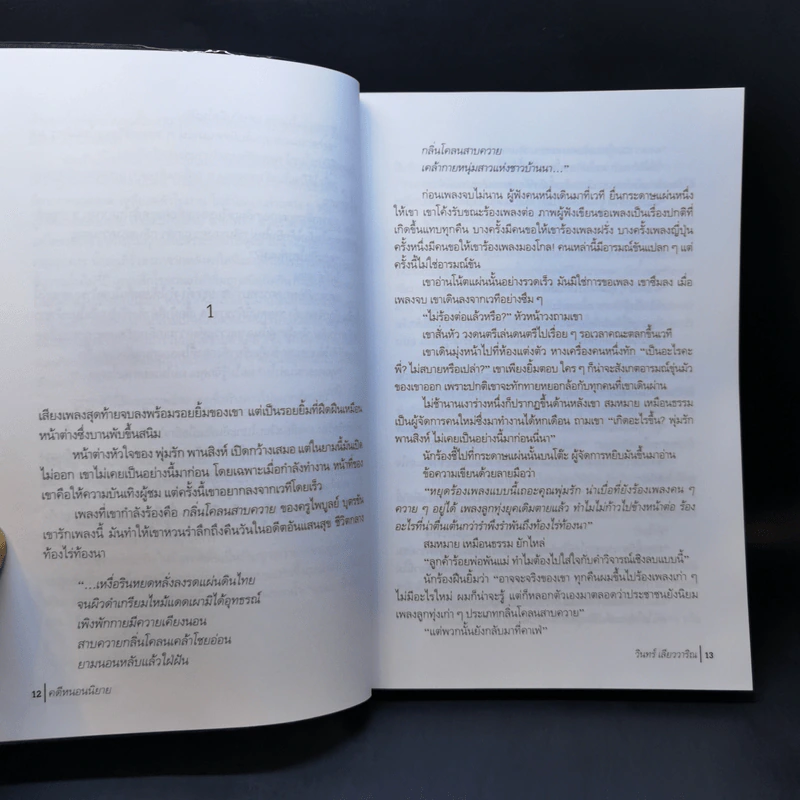 1
เสียงเพลงสุดท้ายจบลงพร้อมรอยยิ้มของเขา แต่เป็นรอยยิ้มที่ฝืดฝืนเหมือน
หน้าต่างซึ่งบานพับขึ้นสนิม
หน้าต่างหัวใจของ พุ่มรัก พานสิงห์ เปิดกว้างเสมอ แต่ในยามนี้มันเปิด
ไม่ออก เขาไม่เคยเป็นอย่างนี้มาก่อน โดยเฉพาะเมื่อกำลังทำงาน หน้าที่ของ
เขาคือให้ความบันเทิงผู้ชม แต่ครั้งนี้เขาอยากลงจากเวทีโดยเร็ว
เพลงที่เขากำลังร้องคือ กลิ่นโคลนสาบควาย ของครูไพบูลย์ บุตรขัน
เขารักเพลงนี้ มันทำให้เขาหวนรำลึกถึงคืนวันในอดีตอันแสนสุข ชีวิตกลาง
ท้องไร่ท้องนา
“...เหงื่อรินหยดหลั่งลงรดแผ่นดินไทย
จนผิวดำเกรียมไหม้แดดเผามิได้อุทธรณ์
เพิงพักกายมีควายเคียงนอน
สาบควายกลิ่นโคลนเคล้าโชยอ่อน
ยามนอนหลับแล้วใฝ่ฝัน
12 คดีหนอนนิยาย
กลิ่นโคลนสาบควาย
เคล้ากายหนุ่มสาวแห่งชาวบ้านนา...”
ก่อนเพลงจบไม่นาน ผู้ฟังคนหนึ่งเดินมาที่เวที ยื่นกระดาษแผ่นหนึ่ง
ให้เขา เขาโค้งรับขณะร้องเพลงต่อ ภาพผู้ฟังเขียนขอเพลงเป็นเรื่องปกติที่
เกิดขึ้นแทบทุกคืน บางครั้งมีคนขอให้เขาร้องเพลงฝรั่ง บางครั้งเพลงญี่ปุ่น
ครั้งหนึ่งมีคนขอให้เขาร้องเพลงมองโกล! คนเหล่านี้มีอารมณ์ขันแปลก ๆ แต่
ครั้งนี้ไม่ใช่อารมณ์ขัน
เขาอ่านโน้ตแผ่นนั้นอย่างรวดเร็ว มันมิใช่การขอเพลง เขาซึมลง เมื่อ
เพลงจบ เขาเดินลงจากเวทีอย่างซึม ๆ
“ไม่ร้องต่อแล้วหรือ?” หัวหน้าวงถามเขา
เขาสั่นหัว วงดนตรีเล่นดนตรีไปเรื่อย ๆ รอเวลาคณะตลกขึ้นเวที
เขาเดินมุ่งหน้าไปที่ห้องแต่งตัว หางเครื่องคนหนึ่งทัก “เป็นอะไรคะ
พี่? ไม่สบายหรือเปล่า?” เขาเพียงยิ้มตอบ ใคร ๆ ก็น่าจะสังเกตอารมณ์ขุ่นมัว
ของเขาออก เพราะปกติเขาจะทักทายหยอกล้อกับทุกคนที่เขาเดินผ่าน
ไม่ช้านานเงาร่างหนึ่งก็ปรากฏขึ้นด้านหลังเขา สมหมาย เหมือนธรรม
เป็นผู้จัดการคนใหม่ซึ่งมาทำงานได้หกเดือน ถามเขา “เกิดอะไรขึ้น? พุ่มรัก
พานสิงห์ ไม่เคยเป็นอย่างนี้มาก่อนนี่นา”
นักร้องชี้ไปที่กระดาษแผ่นนั้นบนโต๊ะ ผู้จัดการหยิบมันขึ้นมาอ่าน
ข้อความเขียนด้วยลายมือว่า
“หยุดร้องเพลงแบบนี้เถอะคุณพุ่มรัก น่าเบื่อที่ยังร้องเพลงคน ๆ
ควาย ๆ อยู่ได้ เพลงลูกทุ่งยุคเดิมตายแล้ว ทำไมไม่ก้าวไปข้างหน้าต่อ ร้อง
อะไรที่น่าตื่นเต้นกว่ารำพึงรำพันถึงท้องไร่ท้องนา”
สมหมาย เหมือนธรรม ยักไหล่
“ลูกค้าร้อยพ่อพันแม่ ทำไมต้องไปใส่ใจกับคำวิจารณ์เชิงลบแบบนี้”
นักร้องฝืนยิ้มว่า “อาจจะจริงของเขา ทุกคืนผมขึ้นไปร้องเพลงเก่า ๆ
ไม่มีอะไรใหม่ ผมก็น่าจะรู้ แต่ก็หลอกตัวเองมาตลอดว่าประชาชนยังนิยม
เพลงลูกทุ่งเก่า ๆ ประเภทกลิ่นโคลนสาบควาย”
“แต่พวกนั้นยังกลับมาที่คาเฟ่”
วินทร์ เลียววาริณ 13